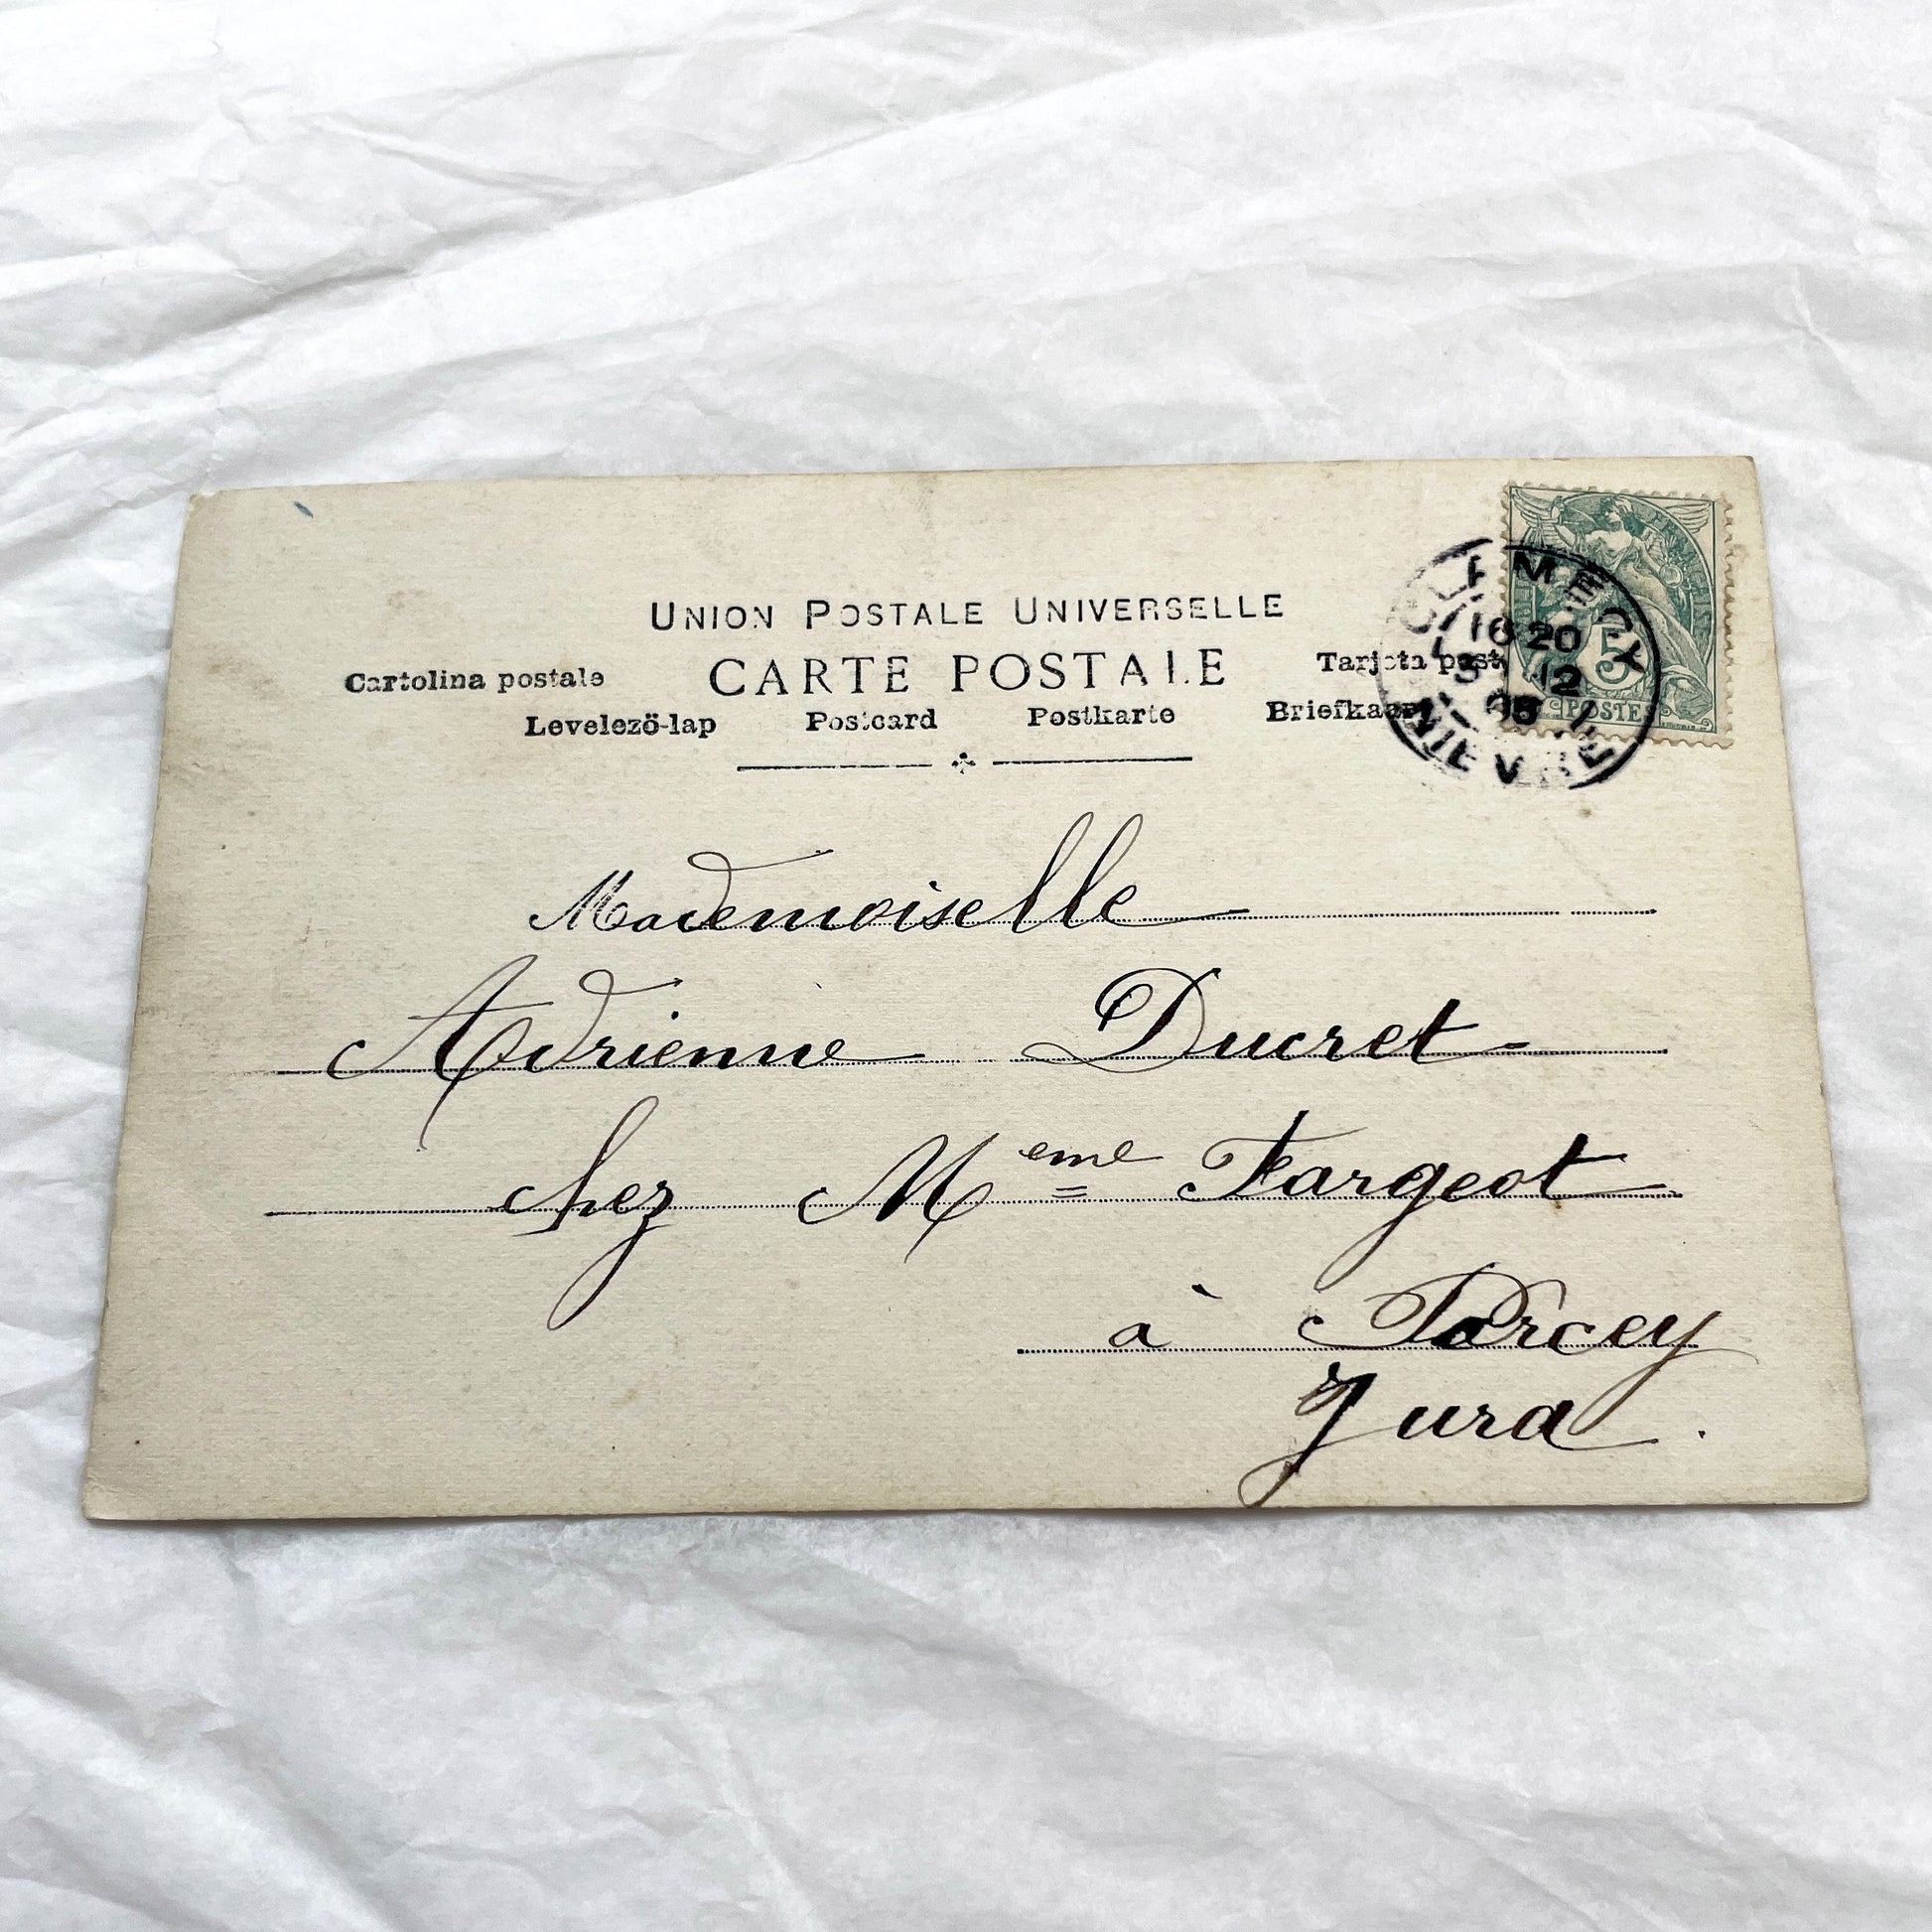 UNION POSTALE UNIVERSELLE
CARTE POSTALE
Cartolina postale Tarjeta post
Levelező-lap Postcard Postkarte Briefkaar
CLAMECY
16 20
3 12
05
NIEVRE
5
POSTES
Mademoiselle
Adrienne Ducret
chez Meme Fargeot
à Parcey
Jura.